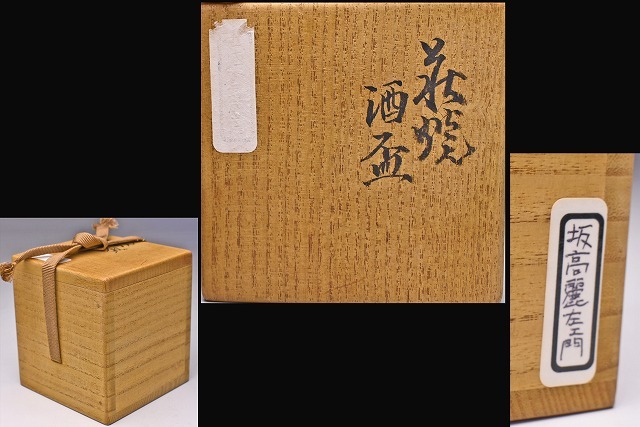 萩焼
酒盃
坂高麗左エ門